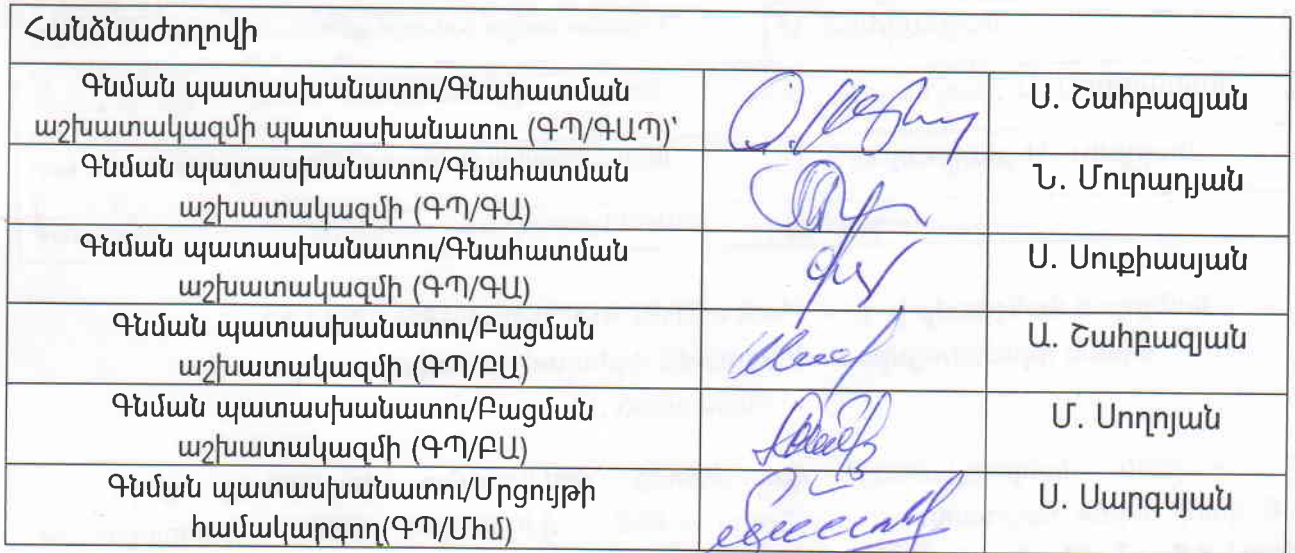 Հանձնաժողովի
Գնման պատասխանատու/Գնահատման
աշխատակազմի պատասխանատու (ԳՊ/ԳԱՊ)՝
Ս. Շահբազյան
Գնման պատասխանատու/Գնահատման
աշխատակազմի (ԳՊ/ԳԱ)
Ն. Մուրադյան
Գնման պատասխանատու/Գնահատման
աշխատակազմի (ԳՊ/ԳԱ)
Ս. Սուքիասյան
Գնման պատասխանատու/Բացման
աշխատակազմի (ԳՊ/ԲԱ)
Ա. Շահբազյան
Գնման պատասխանատու/Բացման
աշխատակազմի (ԳՊ/ԲԱ)
Մ. Սողոյան
Գնման պատասխանատու/Մրցույթի
համակարգող(ԳՊ/Մհմ)
Ս. Սարգսյան